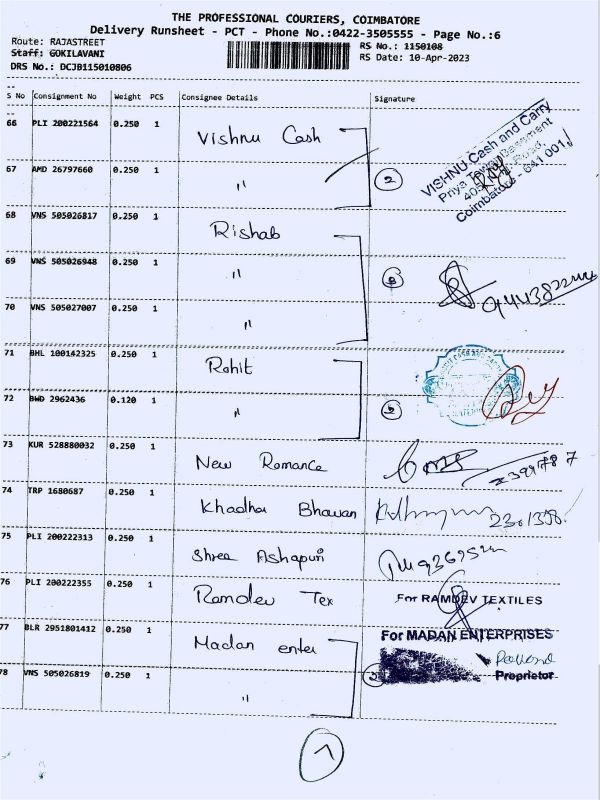 THE PROFESSIONAL COURIERS, COIMBATORE
Delivery Runsheet - PCT - Phone No.:0422-3505555 - Page No.:6
Route: RAJASTREET
RS No.: 1150108
Staff: GOKILAVANI
RS Date: 10-Apr-2023
DRS No.: DCJB115010806
S No Consignment No Weight PCS Consignee Details Signature
66 PLI 200221564 0.250 1 Vishnu Cash
VISHNU Cash and Carry
Coimbatore - 641 001
67 AMD 26797660 0.250 1 "
2
68 VNS 505026817 0.250 1 Rishab
69 VNS 505026948 0.250 1 "
70 VNS 505027007 0.250 1 "
71 BHL 100142325 0.250 1 Rohit
72 BWD 2962436 0.120 1 "
73 KUR 528880032 0.250 1 New Romance
74 TRP 1680687 0.250 1 Khadha Bhawan
75 PLI 200222313 0.250 1 Shree Ashapuri
76 PLI 200222355 0.250 1 Ramdev Tex
For RAMDEV TEXTILES
77 BLR 2951801412 0.250 1 Madan enter
For MADAN ENTERPRISES
Proprietor
78 VNS 505026819 0.250 1 "